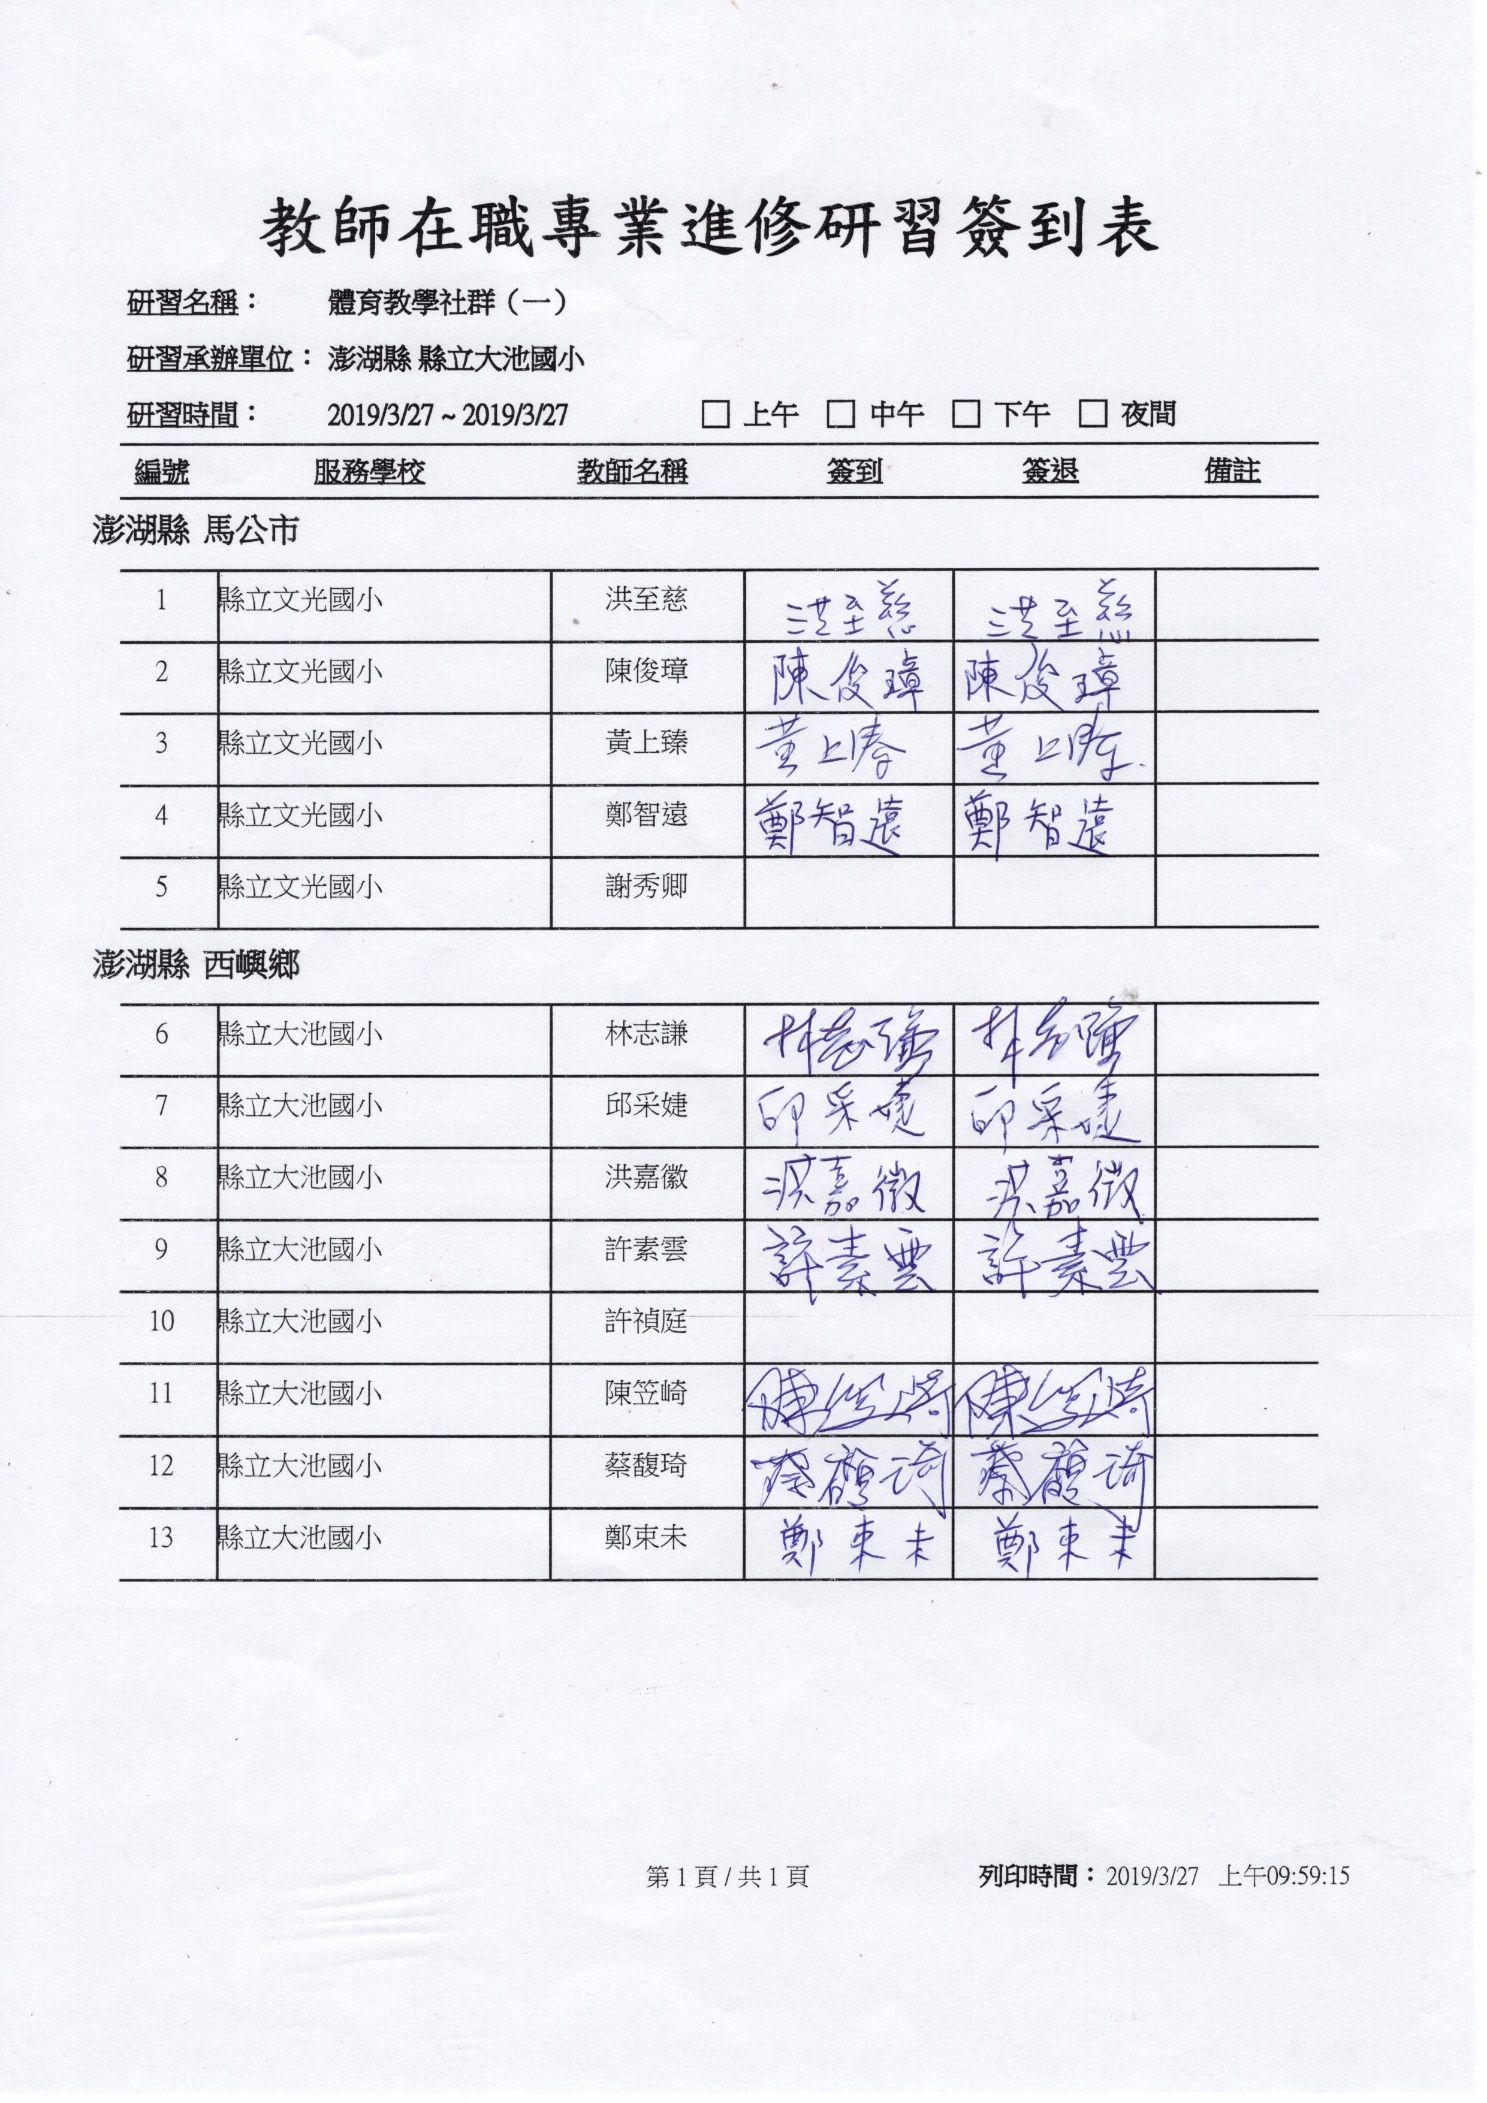 教師在職專業進修研習簽到表
研習名稱： 體育教學社群（一）
研習承辦單位： 澎湖縣 縣立大池國小
研習時間： 2019/3/27 ~ 2019/3/27 □ 上午 □ 中午 □ 下午 □ 夜間
編號 服務學校 教師名稱 簽到 簽退 備註
澎湖縣 馬公市
1 縣立文光國小 洪至慈 洪至慈 洪至慈
2 縣立文光國小 陳俊璋 陳俊璋 陳俊璋
3 縣立文光國小 黃上臻 黃上臻 黃上臻
4 縣立文光國小 鄭智遠 鄭智遠 鄭智遠
5 縣立文光國小 謝秀卿
澎湖縣 西嶼鄉
6 縣立大池國小 林志謙 林志謙 林志謙
7 縣立大池國小 邱采婕 邱采婕 邱采婕
8 縣立大池國小 洪嘉徽 洪嘉徽 洪嘉徽
9 縣立大池國小 許素雲 許素雲 許素雲
10 縣立大池國小 許禎庭
11 縣立大池國小 陳笠崎 陳笠崎 陳笠崎
12 縣立大池國小 蔡馥琦 蔡馥琦 蔡馥琦
13 縣立大池國小 鄭束未 鄭束未 鄭束未
第 1 頁 / 共 1 頁 列印時間： 2019/3/27 上午09:59:15